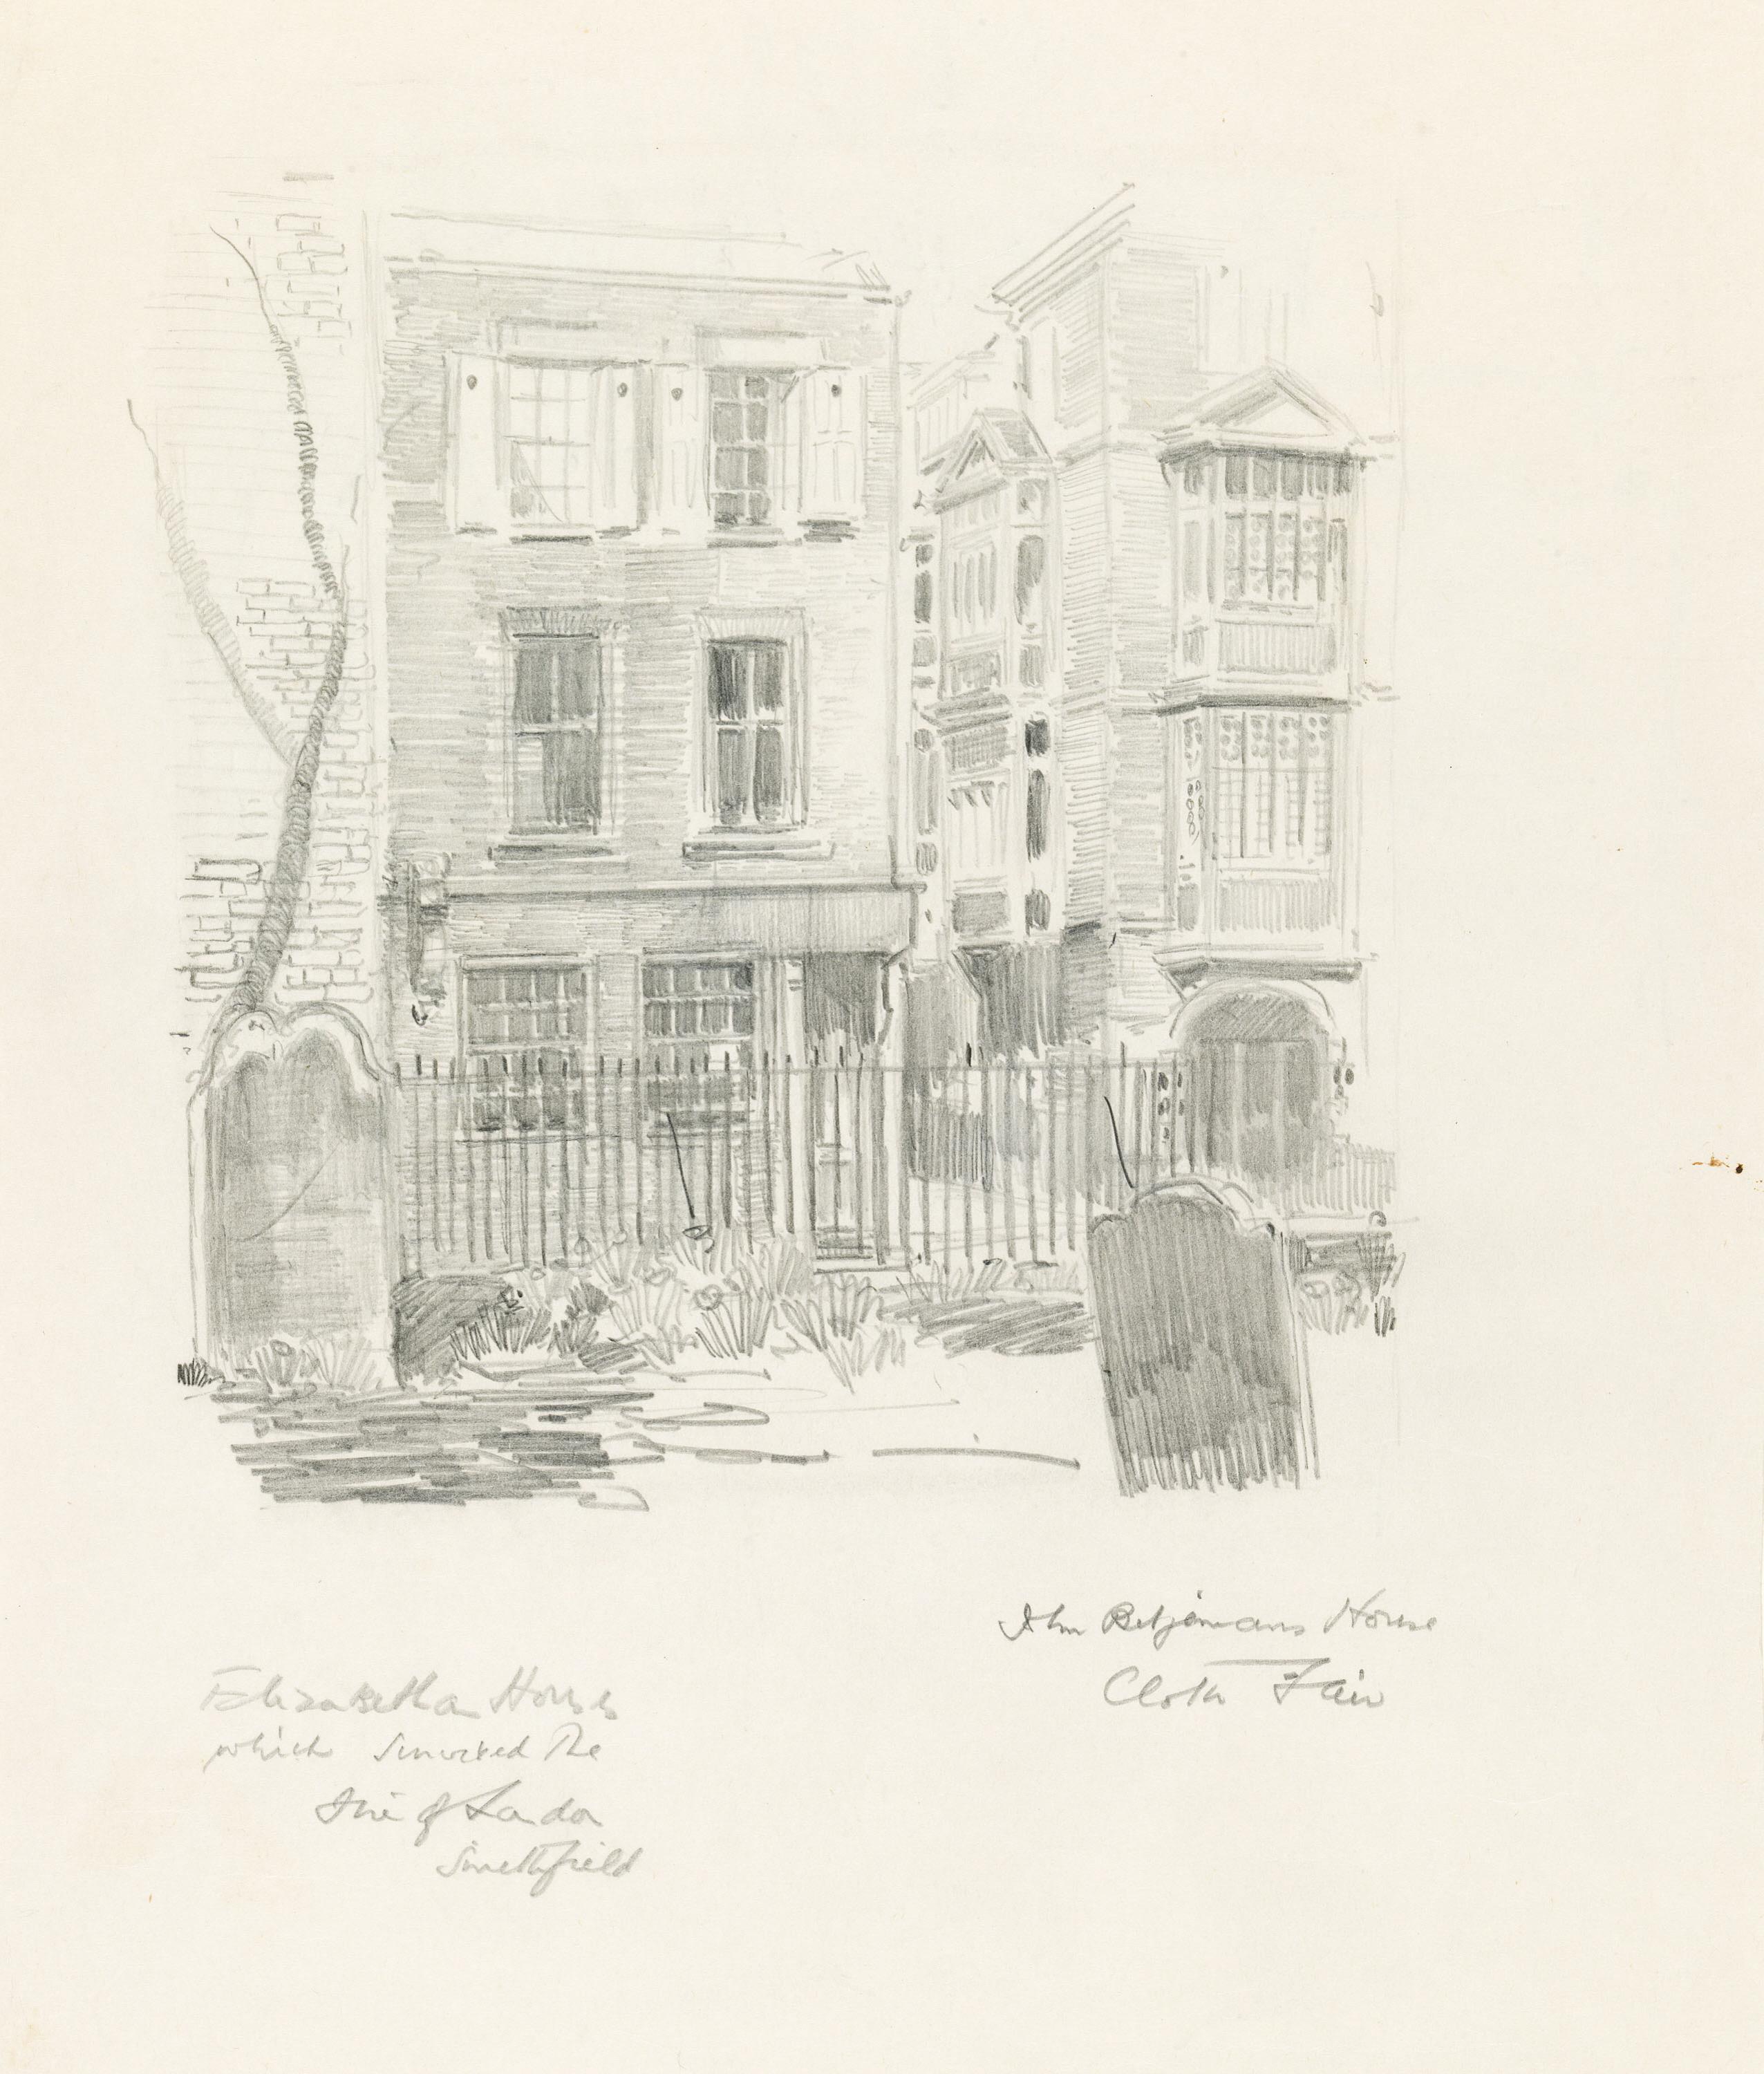 Elizabethan House
which survived the
Fire of London
Smithfield
John Betjemans House
Cloth Fair